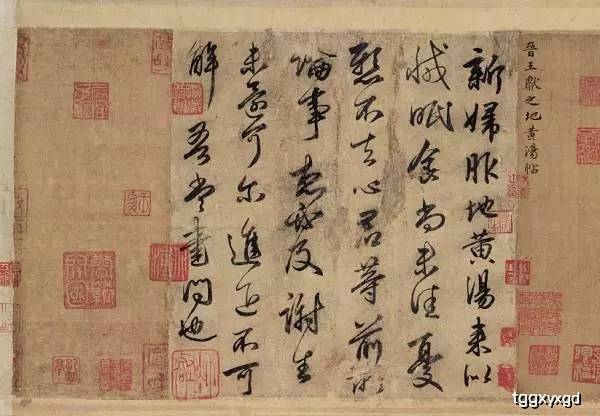 晉王獻之地黄湯帖
新婦服地黄湯来似
減眠食尚未佳憂
懸不去心君等前所
論事想必及謝生
未還可尔進退不可
解吾當書問也
tggxyxgd